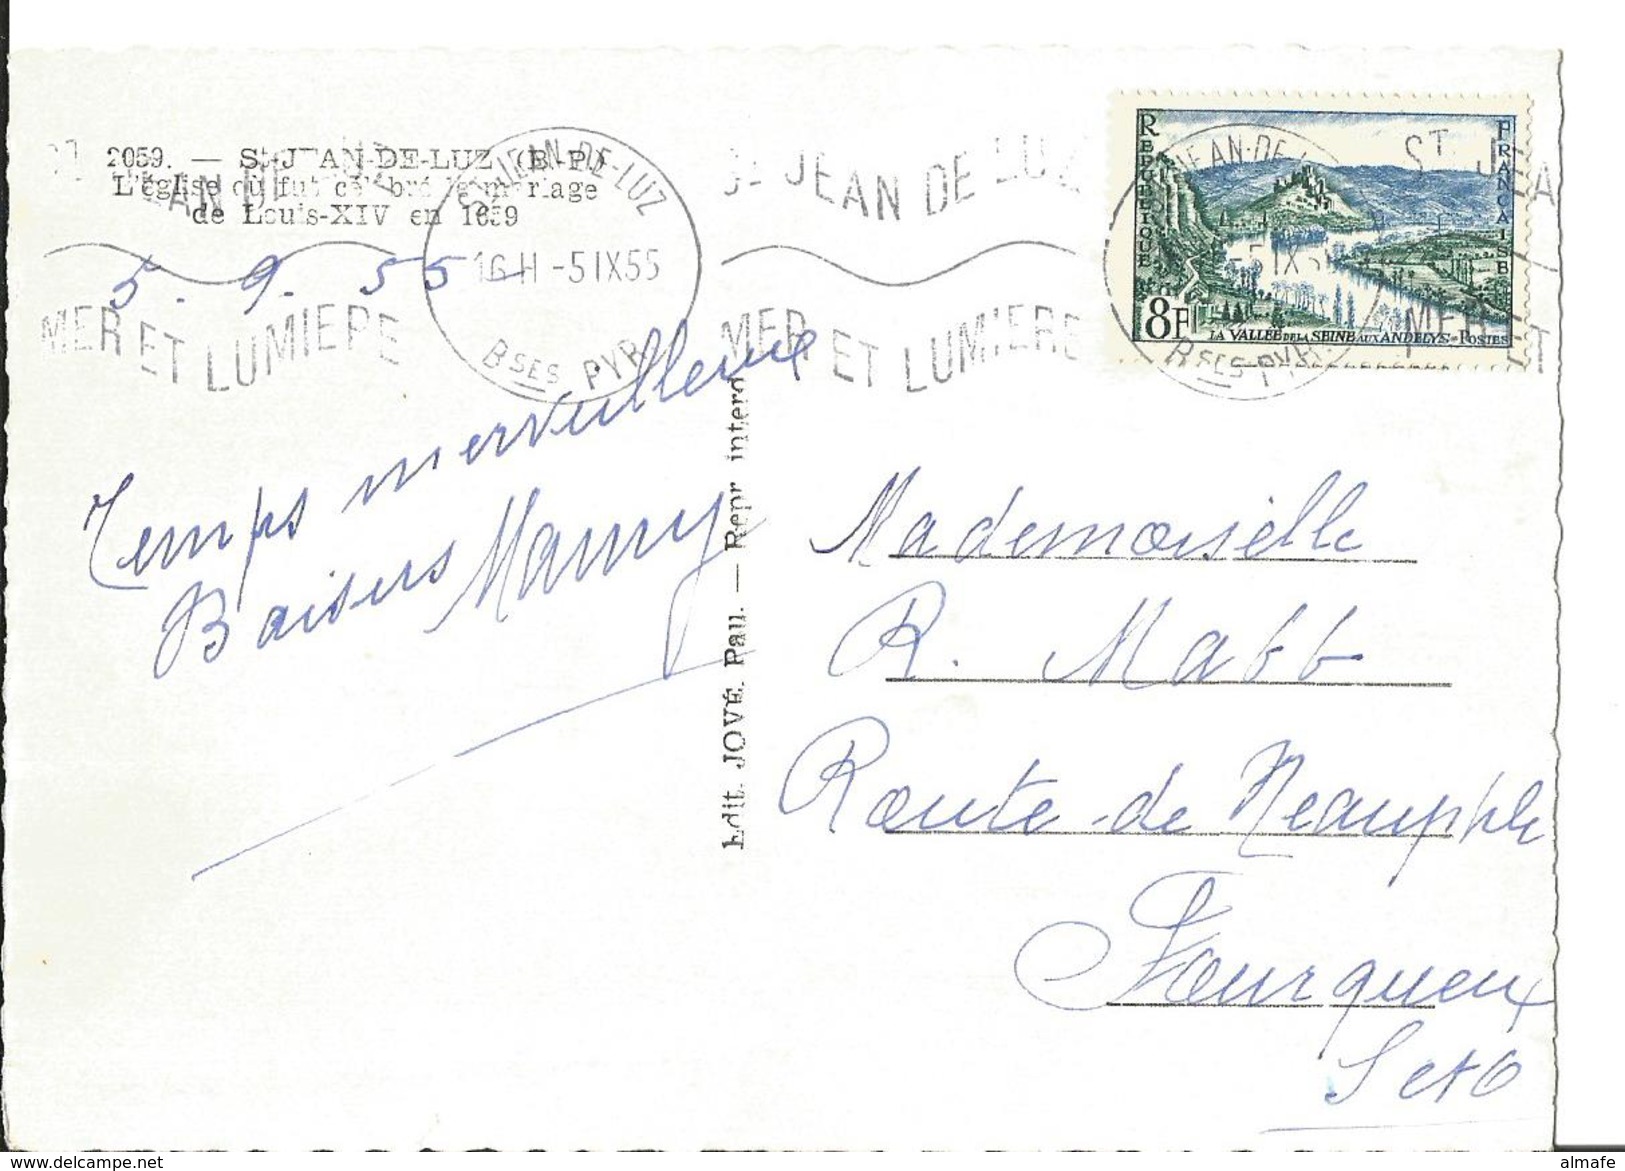 2059. — St-JEAN-DE-LUZ (B.-P.)
L'église où fut célébré le mariage
de Louis-XIV en 1659
5. 9. 55
Temps merveilleux
Baisers Mamy
Edit. JOVÉ. Pau. — Repr interd
ST JEAN-DE-LUZ
16 H -5 IX 55
BSES PYR.
ST JEAN DE LUZ
MER ET LUMIERE
ST JEAN DE LUZ
MER ET LUMIERE
REPUBLIQUE FRANCAISE
8F
LA VALLÉE DE LA SEINE AUX ANDELYS - POSTES
JEAN-DE-L
-5 IX 5
BSES PYR.
ST JEA
MER ET
Mademoiselle
R. Mabb
Route de Neauphle
Fourqueux
S et O
almafe